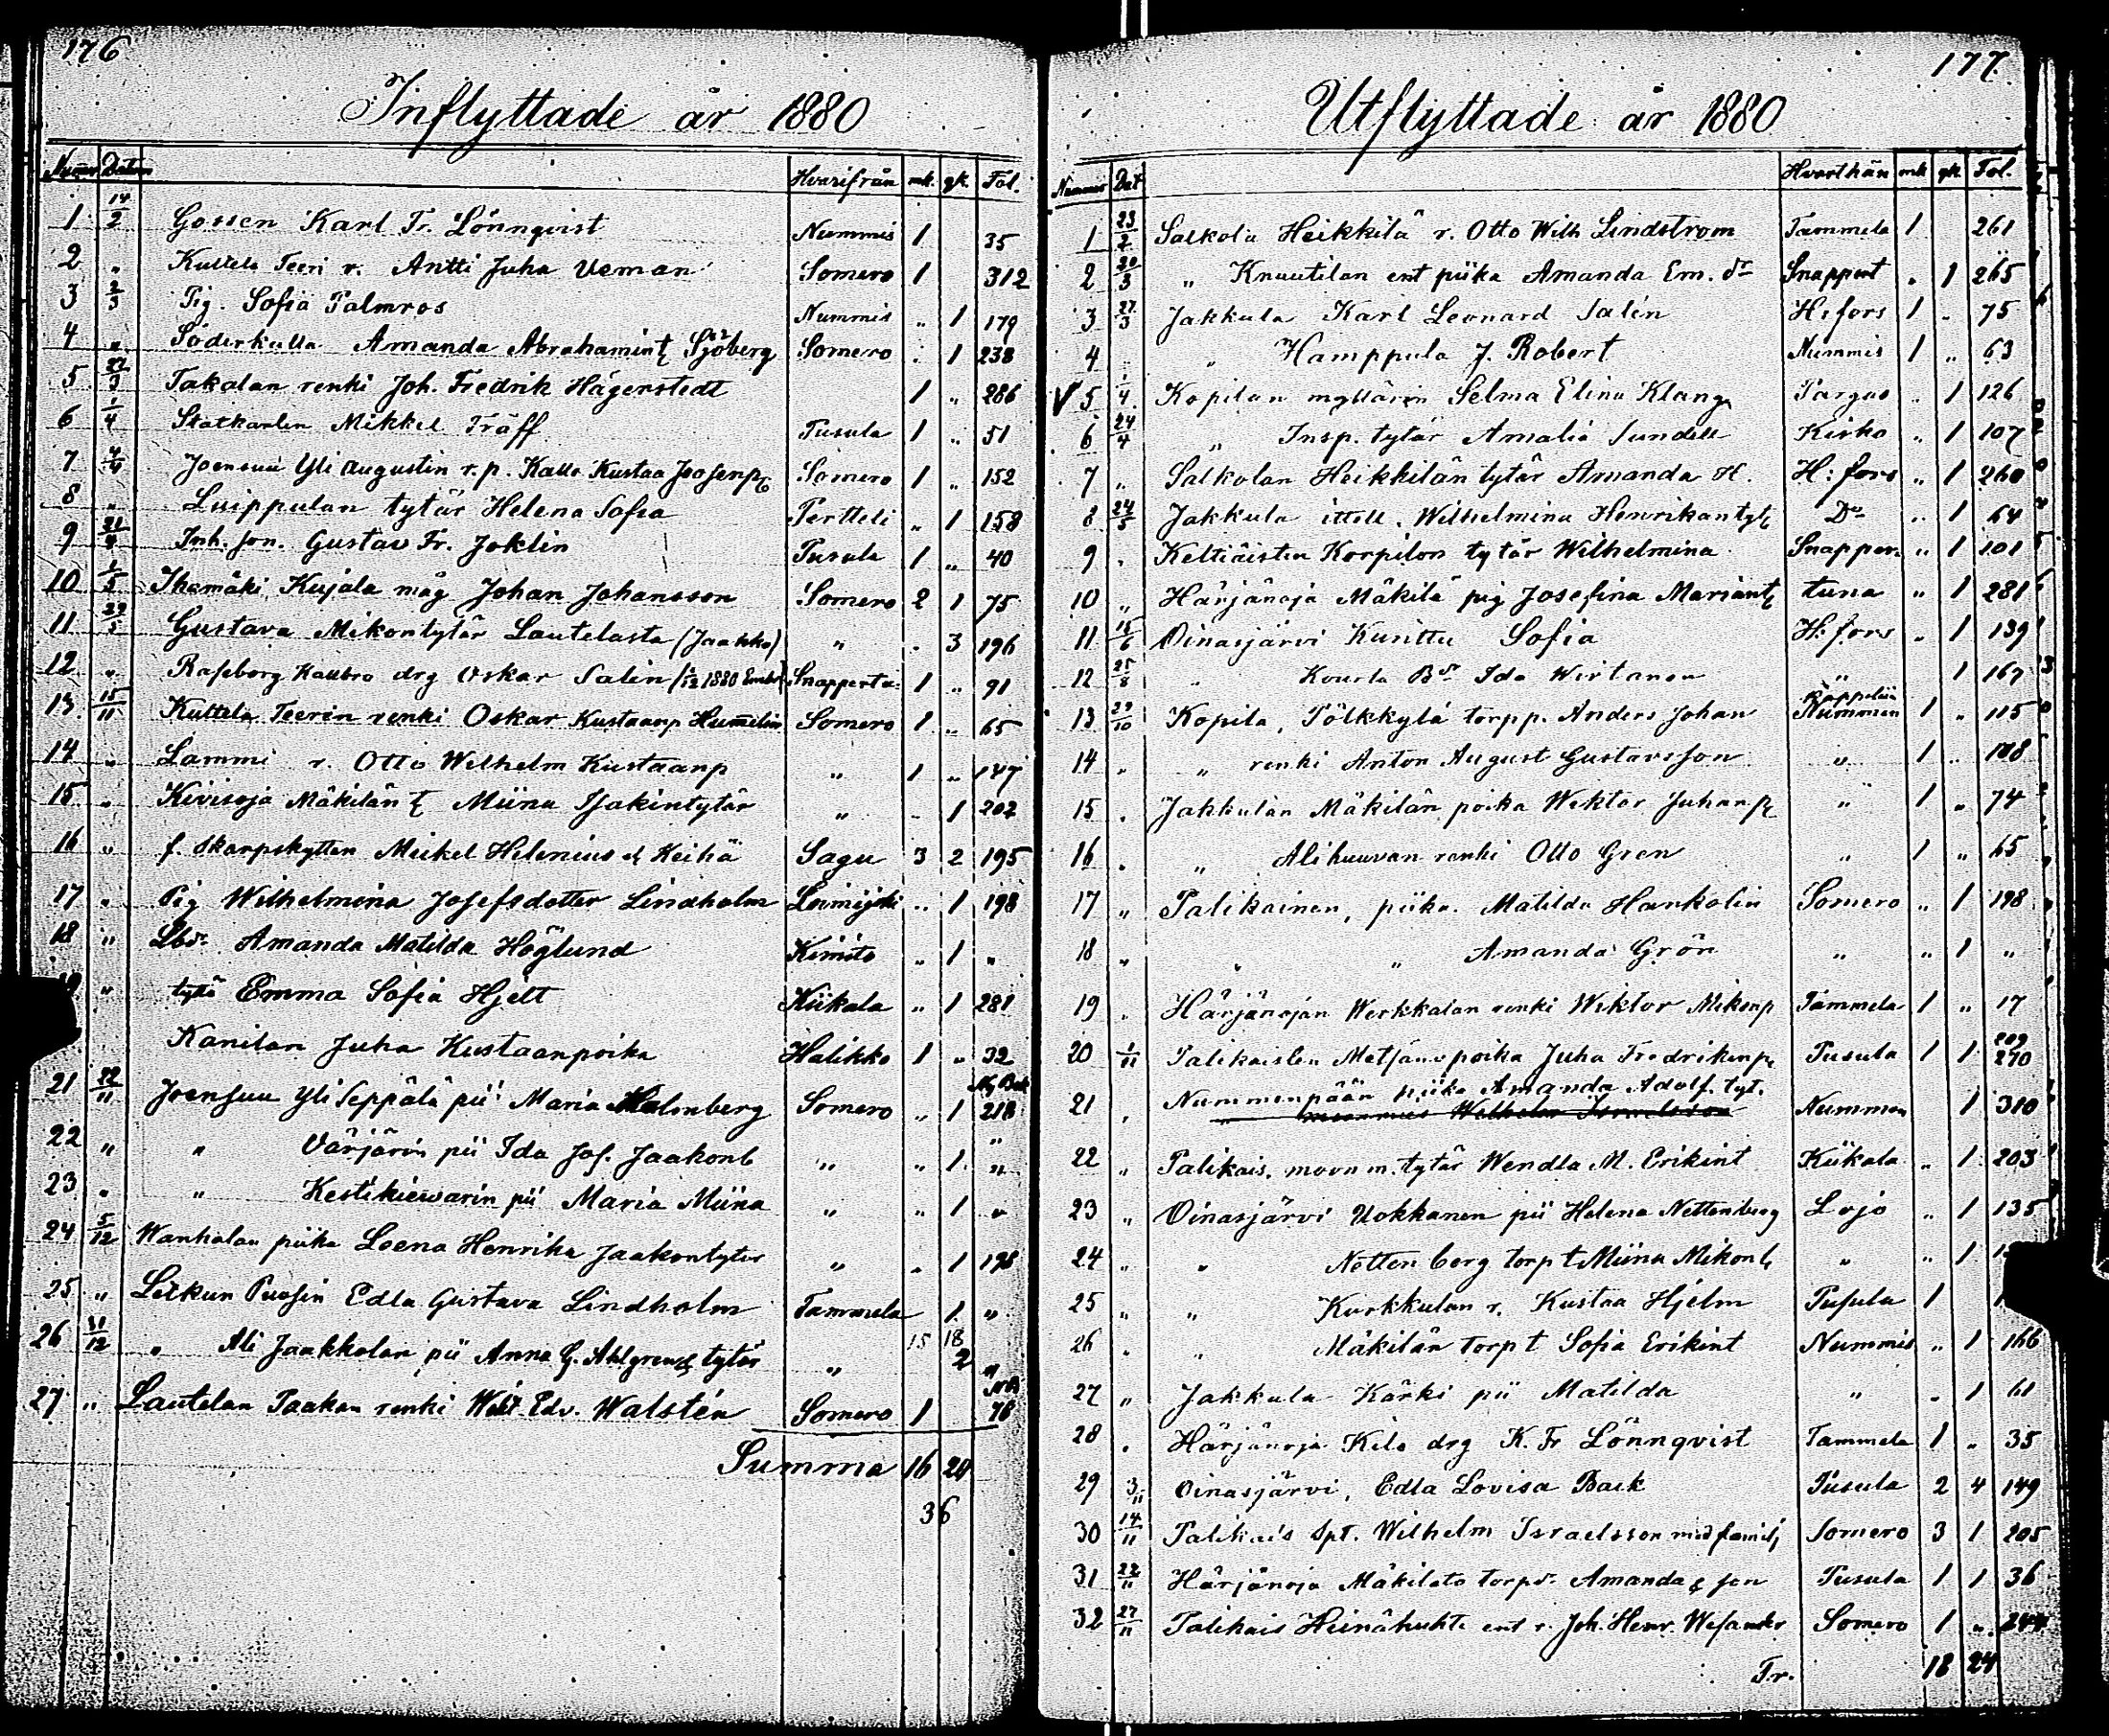 176
Inflyttade år 1880
Numer Datum Hvarifrån mk. qk. Fol.
1 14/2 Gossen Karl Fr. Lönnqvist Nummis 1 35
2 " Kultela Teeri r. Antti Juha Ueman Somero 1 312
3 2/3 Pig. Sofia Palmros Nummis " 1 179
4 " Söderkulla Amanda Abrahamint Sjöberg Somero " 1 238
5 22/3 Takalan renki Joh. Fredrik Hägerstedt 1 " 286
6 1/4 Statkarlen Mikkel Träff Pusula 1 " 51
7 4/4 Joensuu Yli Augustin r.p. Kalle Kustaa Joosefinp Somero 1 " 152
8 " Luippulan tytär Helena Sofia Pertteli " 1 158
9 21/4 Inh. son. Gustav Fr. Joklin Pusula 1 " 40
10 1/5 Ihamäki Kujala måg Johan Johansson Somero 2 1 75
11 29/5 Gustava Mikontytär Lautelasta (Jaakko) " " 3 196
12 " Raseborg Kallbro drg Oskar Salin Snapperta 1 " 91
13 15/11 Kultela Teerin renki Oskar Kustaanp Humelin Somero 1 " 65
14 " Lammi r. Otto Wilhelm Kustaanp " 1 " 147
15 " Kivisoja Mäkilän t Miina Isakintytär " " 1 202
16 " f. Skarpskytten Meikel Helenius Keihä Sagu 3 2 195
17 " Pig Wilhelmina Josefsdotter Lindholm Loimijoki " 1 198
18 " Amanda Matilda Höglund Kimito " 1 "
" tyttö Emma Sofia Hjelt Kiikala " 1 281
Kanilan Juha Kustaanpoika Halikko 1 " 32
21 22/11 Joensuu Yli Seppälä pii Maria Malmberg Somero " 1 218
22 " " Värjärin pii Ida Jos. Jaakont " " 1 "
23 " " Kestikiewarin pii Maria Miina " " 1 "
24 5/12 Wanhalan piika Leena Henrika Jaakontytär " " 1 198
25 " Leikun Puosin Edla Gustava Lindholm Tammela 1 "
26 31/12 " Ali Jaakkolan pii Anna G. Ahlgren & tytär " 2 "
15 18
27 " Lautelan Paakan renki Edv. Walstén Somero 1 76
Summa 16 20
36
177
Utflyttade år 1880
Nummer Dat Hvarthän mk qk Fol.
1 23/2 Salkola Heikkilä r. Otto Wilh Lindström Tammela 1 261
2 20/3 " Knuutilan ent piika Amanda Em. dr Snappert " 1 265
3 27/3 Jakkula Karl Leonard Salin H:fors 1 " 75
4 " " Hamppula J. Robert Nummis 1 " 63
V 5 1/4 Kopilan myllärin Selma Elina Klang Pargas " 1 126
6 24/4 " Insp. tytär Amalia Sundell Kisko " 1 107
7 " Salkolan Heikkilän tytär Amanda H. H:fors " 1 260
8 24/5 Jakkula ittell. Wilhelmina Henrikantyt Do " 1 64
9 " Keltiäisten Korpilon tytär Wilhelmina Snapper. " 1 101
10 " Härjänoja Mäkilä pig Josefina Mariant tuna " 1 281
11 15/6 Oinasjärvi Kurittu Sofia H:fors " 1 139
12 25/8 " Kourla Ida Wirtanen " 1 167
13 29/10 Kopila, Pölkkylä torpp. Anders Johan Nummen 1 " 115
14 " " renki Anton August Gustavsson " 1 " 108
15 " Jakkulan Mäkilän poika Wiktor Juhanp " 1 " 74
16 " " Alikuuvan renki Otto Gren " 1 " 65
17 " Palikainen, piika Matilda Hankolin Somero " 1 198
18 " " " Amanda Grön " " 1 "
19 " Härjänojan Werkkalan renki Wiktor Mikonp Tammela 1 " 17
20 1/11 Palikaisten Metsänv poika Juha Fredrikinp Pusula 1 1 209 270
21 " Nummenpään piika Amanda Adolf. tyt. Nummen 1 310
22 " Palikais. tytär Wendla M. Erikint Kiikala " 1 203
23 " Oinasjärvi Uokkanen pii Helena Nettenberg Lojo " 1 135
24 " " Nettenberg torp t Miina Mikont " " 1
25 " " Kurkkulan r. Kustaa Hjelm Pusula 1
26 " " Mäkilän torp t Sofia Erikint Nummis " 1 166
27 " Jakkula Kärki pii Matilda " " 1 61
28 " Härjänoja Kilo drg K. Fr Lönnqvist Tammela 1 " 35
29 3/11 Oinasjärvi, Edla Lovisa Back Pusula 2 4 149
30 14/11 Palikais Spt. Wilhelm Israelsson med familj Somero 3 1 205
31 22/11 Härjänoja Mäkilots torpd. Amanda & son Pusula 1 1 36
32 27/11 Palikais Heinähuhta ent r. Joh. Henr. Wesander Somero 1 " 244
Tr. 18 24